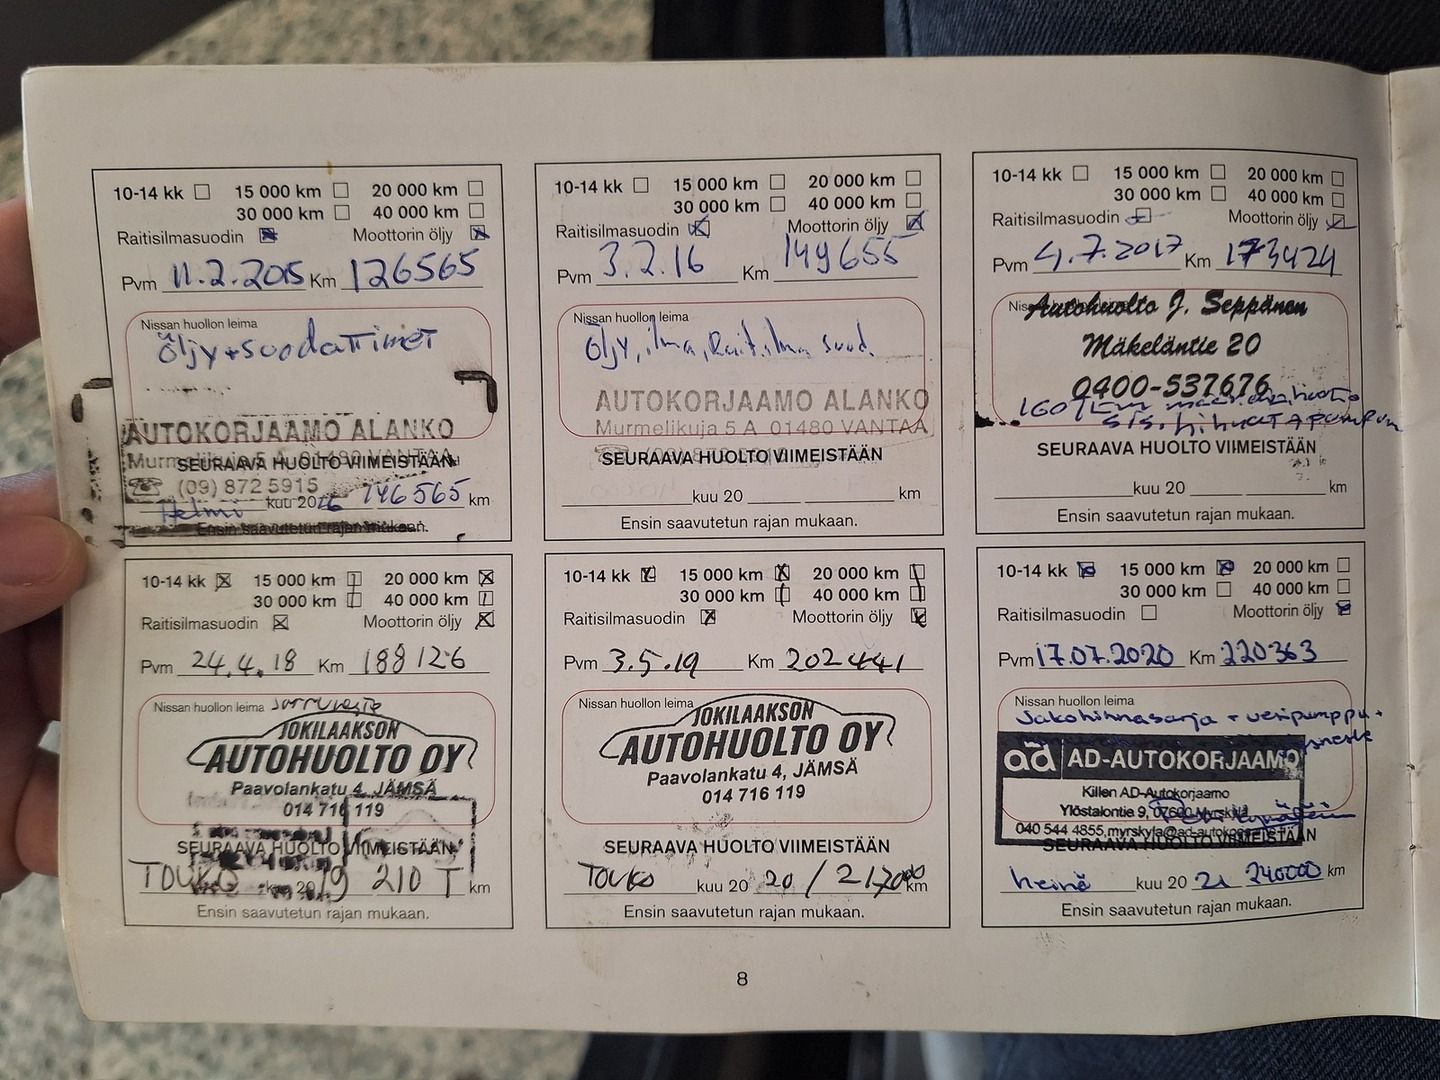 10-14 kk 15 000 km 20 000 km
30 000 km 40 000 km
Raitisilmasuodin Moottorin öljy
Pvm 11.2.2015 Km 126565
Nissan huollon leima
Öljy + suodattimet
AUTOKORJAAMO ALANKO
Murmelikuja 5 A 01480 VANTAA
SEURAAVA HUOLTO VIIMEISTÄÄN
(09) 872 5915
Helmi kuu 2016 146565 km
Ensin saavutetun rajan mukaan.
10-14 kk 15 000 km 20 000 km
30 000 km 40 000 km
Raitisilmasuodin Moottorin öljy
Pvm 3.2.16 Km 149655
Nissan huollon leima
Öljy, ilma, Rait.ilma suod.
AUTOKORJAAMO ALANKO
Murmelikuja 5 A 01480 VANTAA
SEURAAVA HUOLTO VIIMEISTÄÄN
kuu 20 km
Ensin saavutetun rajan mukaan.
10-14 kk 15 000 km 20 000 km
30 000 km 40 000 km
Raitisilmasuodin Moottorin öljy
Pvm 4.7.2017 Km 173424
Autohuolto J. Seppänen
Mäkeläntie 20
0400-537676
SEURAAVA HUOLTO VIIMEISTÄÄN
kuu 20 km
Ensin saavutetun rajan mukaan.
10-14 kk 15 000 km 20 000 km
30 000 km 40 000 km
Raitisilmasuodin Moottorin öljy
Pvm 24.4.18 Km 188126
Nissan huollon leima Jarruneste
JOKILAAKSON
AUTOHUOLTO OY
Paavolankatu 4, JÄMSÄ
014 716 119
SEURAAVA HUOLTO VIIMEISTÄÄN
TOUKO kuu 2019 210 T km
Ensin saavutetun rajan mukaan.
10-14 kk 15 000 km 20 000 km
30 000 km 40 000 km
Raitisilmasuodin Moottorin öljy
Pvm 3.5.19 Km 202441
Nissan huollon leima
JOKILAAKSON
AUTOHUOLTO OY
Paavolankatu 4, JÄMSÄ
014 716 119
SEURAAVA HUOLTO VIIMEISTÄÄN
TOUKO kuu 20 20 / 217000 km
Ensin saavutetun rajan mukaan.
10-14 kk 15 000 km 20 000 km
30 000 km 40 000 km
Raitisilmasuodin Moottorin öljy
Pvm 17.07.2020 Km 220363
Nissan huollon leima
Jakohihnasarja + vesipumppu +
ad AD-AUTOKORJAAMO
Killen AD-Autokorjaamo
Ylöstalontie 9, 07600 Myrskylä
040 544 4855
SEURAAVA HUOLTO VIIMEISTÄÄN
heinä kuu 20 21 240000 km
Ensin saavutetun rajan mukaan.
8